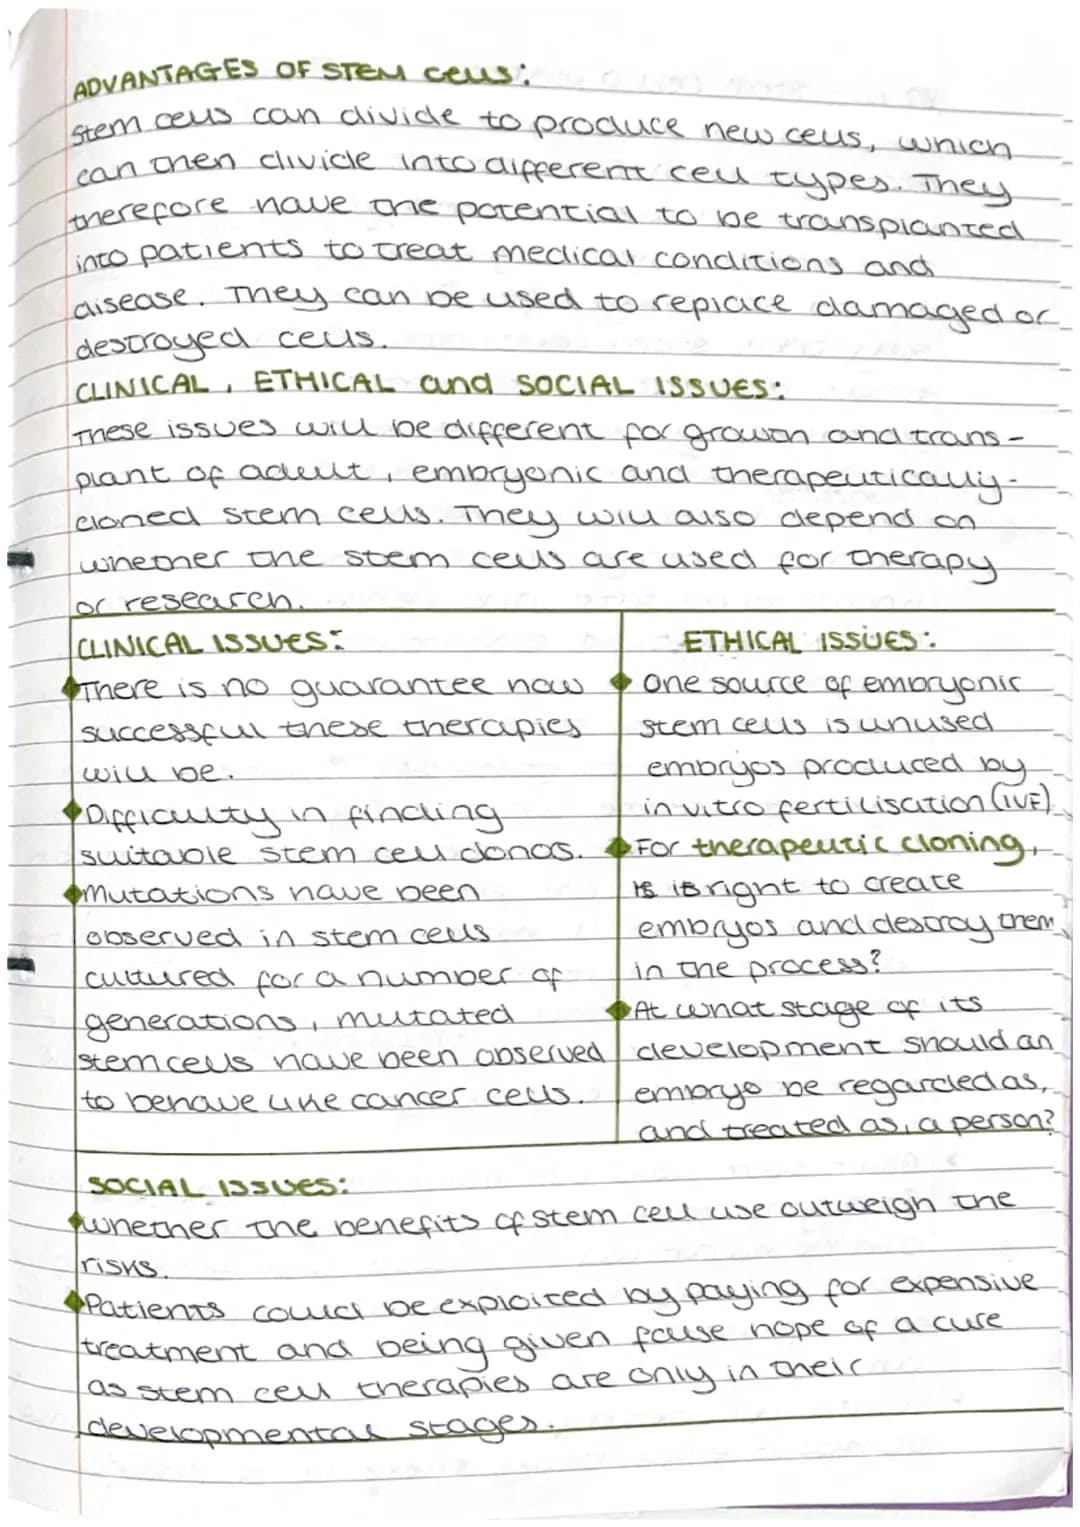 ADVANTAGES OF STEM cells:
Stem cells can divide to produce new cells, which
can then divide into different cell types. They
therefore have the potential to be transplanted
into patients to treat medical conditions and
disease. They can be used to replace damaged or
destroyed cells.
CLINICAL, ETHICAL and SOCIAL ISSUES:
These issues will be different for growth and trans-
plant of adult, embryonic and therapeutically-
cloned stem cells. They will also depend on
whether the stem cells are used for therapy
or research.
CLINICAL ISSUES:
There is no guarantee how
successful these therapies
will be.
Difficulty in finding
suitable stem cell donos.
Mutations have been
observed in stem cells
cultured for a number of
generations, mutated
stem cells have been observed
to behave like cancer cells.
ETHICAL ISSUES:
One source of embryonic
stem cells is unused
embryos produced by
in vitro fertilisation (IVF).
For therapeutic cloning,
is it right to create
embryos and destroy them
in the process?
At what stage of its
development should an
embryo be regarded as,
and treated as, a person?
SOCIAL ISSUES:
Whether the benefits of stem cell use outweigh the
risks.
Patients could be exploited by paying for expensive
treatment and being given false hope of a cure
as stem cell therapies are only in their
developmental stages.